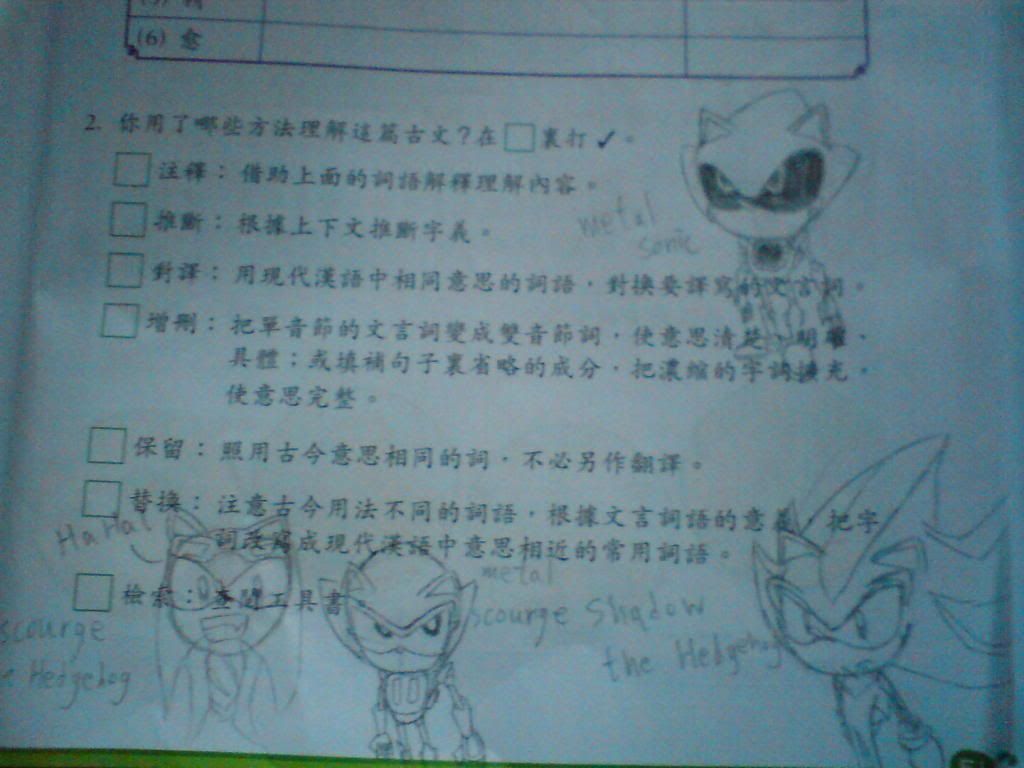 (6) 愈
2. 你用了哪些方法理解這篇古文？在□裏打✓。
□注釋：借助上面的詞語解釋理解內容。
metal
sonic
□推斷：根據上下文推斷字義。
□對譯：用現代漢語中相同意思的詞語，對換要譯寫的文言詞。
□增刪：把單音節的文言詞變成雙音節詞，使意思清楚、明確、
具體；或填補句子裏省略的成分，把濃縮的字詞擴充，
使意思完整。
□保留：照用古今意思相同的詞，不必另作翻譯。
□替換：注意古今用法不同的詞語，根據文言詞語的意義，把字
詞改寫成現代漢語中意思相近的常用詞語。
HaHa!
□檢索：查閱工具書。
scourge
Hedgehog
metal
scourge
Shadow
the Hedgehog